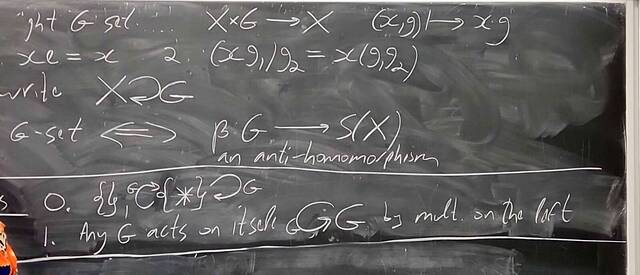 ight G-set.... X×G → X (x,g) ↦ x·g
xe = x 2. (xg₁)g₂ = x(g₁g₂)
write X ⟲ G
G-set ⟺ β: G → S(X)
an anti-homomorphism
s 0. {}, G ⟳ {*} ⟲ G
1. Any G acts on itself G ⟳ G by mult. on the left